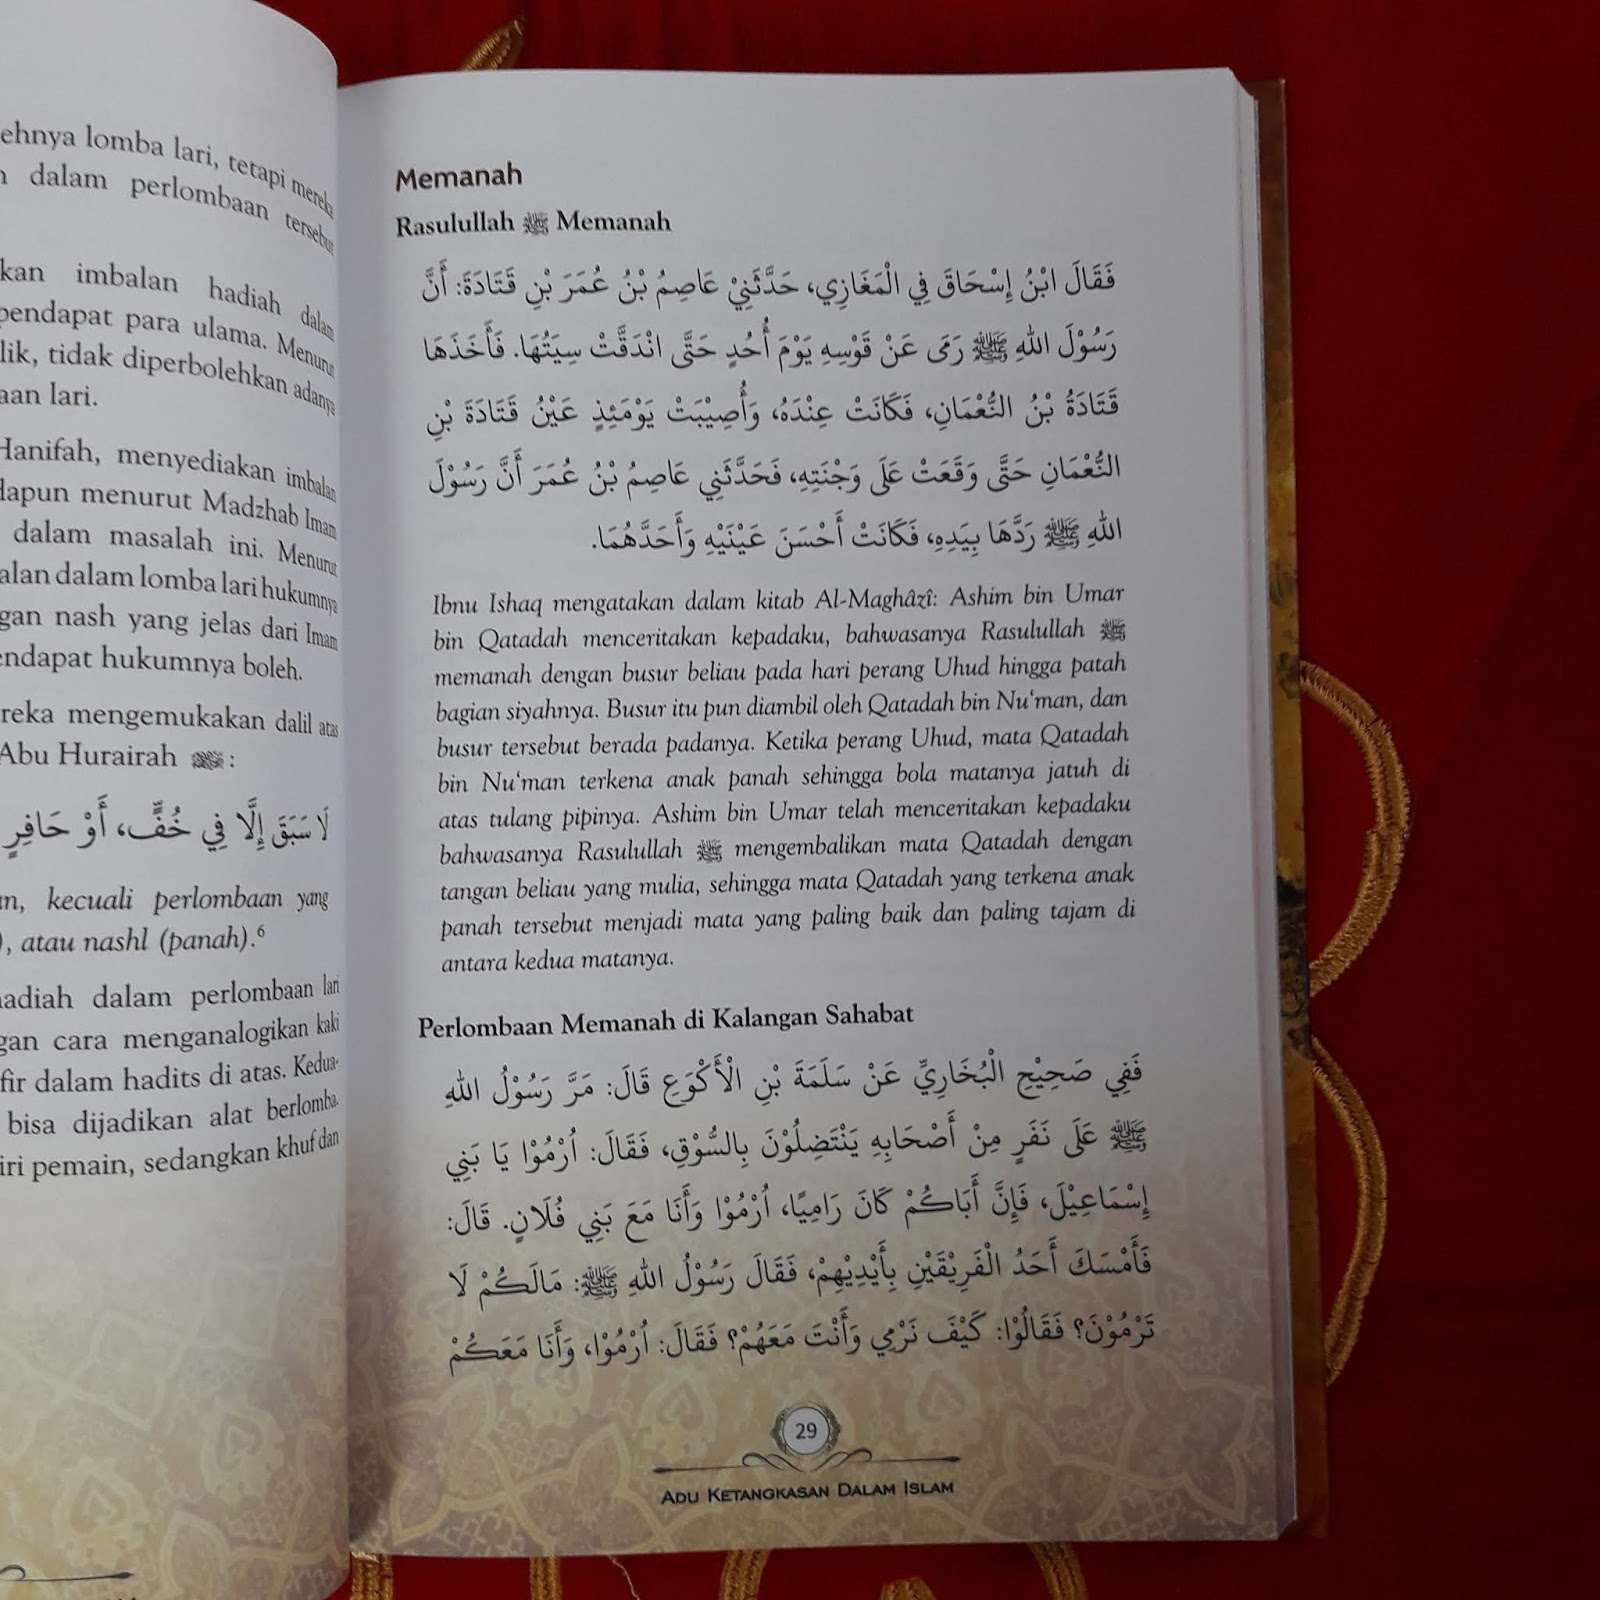 ehnya lomba lari, tetapi mereka
dalam perlombaan tersebut
kan imbalan hadiah dalam
pendapat para ulama. Menurut
lik, tidak diperbolehkan adanya
aan lari.
Hanifah, menyediakan imbalan
dapun menurut Madzhab Imam
dalam masalah ini. Menurut
alan dalam lomba lari hukumnya
gan nash yang jelas dari Imam
endapat hukumnya boleh.
reka mengemukakan dalil atas
Abu Hurairah :
لَا سَبَقَ إِلَّا فِي خُفٍّ، أَوْ حَافِرٍ
an, kecuali perlombaan yang
), atau nashl (panah).6
hadiah dalam perlombaan lari
gan cara menganalogikan kaki
fir dalam hadits di atas. Kedua-
bisa dijadikan alat berlomba.
iri pemain, sedangkan khuf dan
Memanah
Rasulullah ﷺ Memanah
فَقَالَ ابْنُ إِسْحَاقَ فِي الْمَغَازِي، حَدَّثَنِيْ عَاصِمُ بْنُ عُمَرَ بْنِ قَتَادَةَ: أَنَّ
رَسُوْلَ اللهِ ﷺ رَمَى عَنْ قَوْسِهِ يَوْمَ أُحُدٍ حَتَّى انْدَقَّتْ سِيَتُهَا. فَأَخَذَهَا
قَتَادَةُ بْنُ النُّعْمَانِ، فَكَانَتْ عِنْدَهُ، وَأُصِيْبَتْ يَوْمَئِذٍ عَيْنُ قَتَادَةَ بْنِ
النُّعْمَانِ حَتَّى وَقَعَتْ عَلَى وَجْنَتِهِ، فَحَدَّثَنِي عَاصِمُ بْنُ عُمَرَ أَنَّ رَسُوْلَ
اللهِ ﷺ رَدَّهَا بِيَدِهِ، فَكَانَتْ أَحْسَنَ عَيْنَيْهِ وَأَحَدَّهُمَا.
Ibnu Ishaq mengatakan dalam kitab Al-Maghâzî: Ashim bin Umar
bin Qatadah menceritakan kepadaku, bahwasanya Rasulullah ﷺ
memanah dengan busur beliau pada hari perang Uhud hingga patah
bagian siyahnya. Busur itu pun diambil oleh Qatadah bin Nu‘man, dan
busur tersebut berada padanya. Ketika perang Uhud, mata Qatadah
bin Nu‘man terkena anak panah sehingga bola matanya jatuh di
atas tulang pipinya. Ashim bin Umar telah menceritakan kepadaku
bahwasanya Rasulullah ﷺ mengembalikan mata Qatadah dengan
tangan beliau yang mulia, sehingga mata Qatadah yang terkena anak
panah tersebut menjadi mata yang paling baik dan paling tajam di
antara kedua matanya.
Perlombaan Memanah di Kalangan Sahabat
فَفِي صَحِيْحِ الْبُخَارِيِّ عَنْ سَلَمَةَ بْنِ الْأَكْوَعِ قَالَ: مَرَّ رَسُوْلُ اللهِ
ﷺ عَلَى نَفَرٍ مِنْ أَصْحَابِهِ يَنْتَضِلُوْنَ بِالسُّوْقِ، فَقَالَ: اُرْمُوْا يَا بَنِي
إِسْمَاعِيْلَ، فَإِنَّ أَبَاكُمْ كَانَ رَامِيًا، اُرْمُوْا وَأَنَا مَعَ بَنِي فُلَانٍ. قَالَ:
فَأَمْسَكَ أَحَدُ الْفَرِيْقَيْنِ بِأَيْدِيْهِمْ، فَقَالَ رَسُوْلُ اللهِ ﷺ: مَالَكُمْ لَا
تَرْمُوْنَ؟ فَقَالُوْا: كَيْفَ نَرْمِي وَأَنْتَ مَعَهُمْ؟ فَقَالَ: اُرْمُوْا، وَأَنَا مَعَكُمْ
29
Adu Ketangkasan Dalam Islam